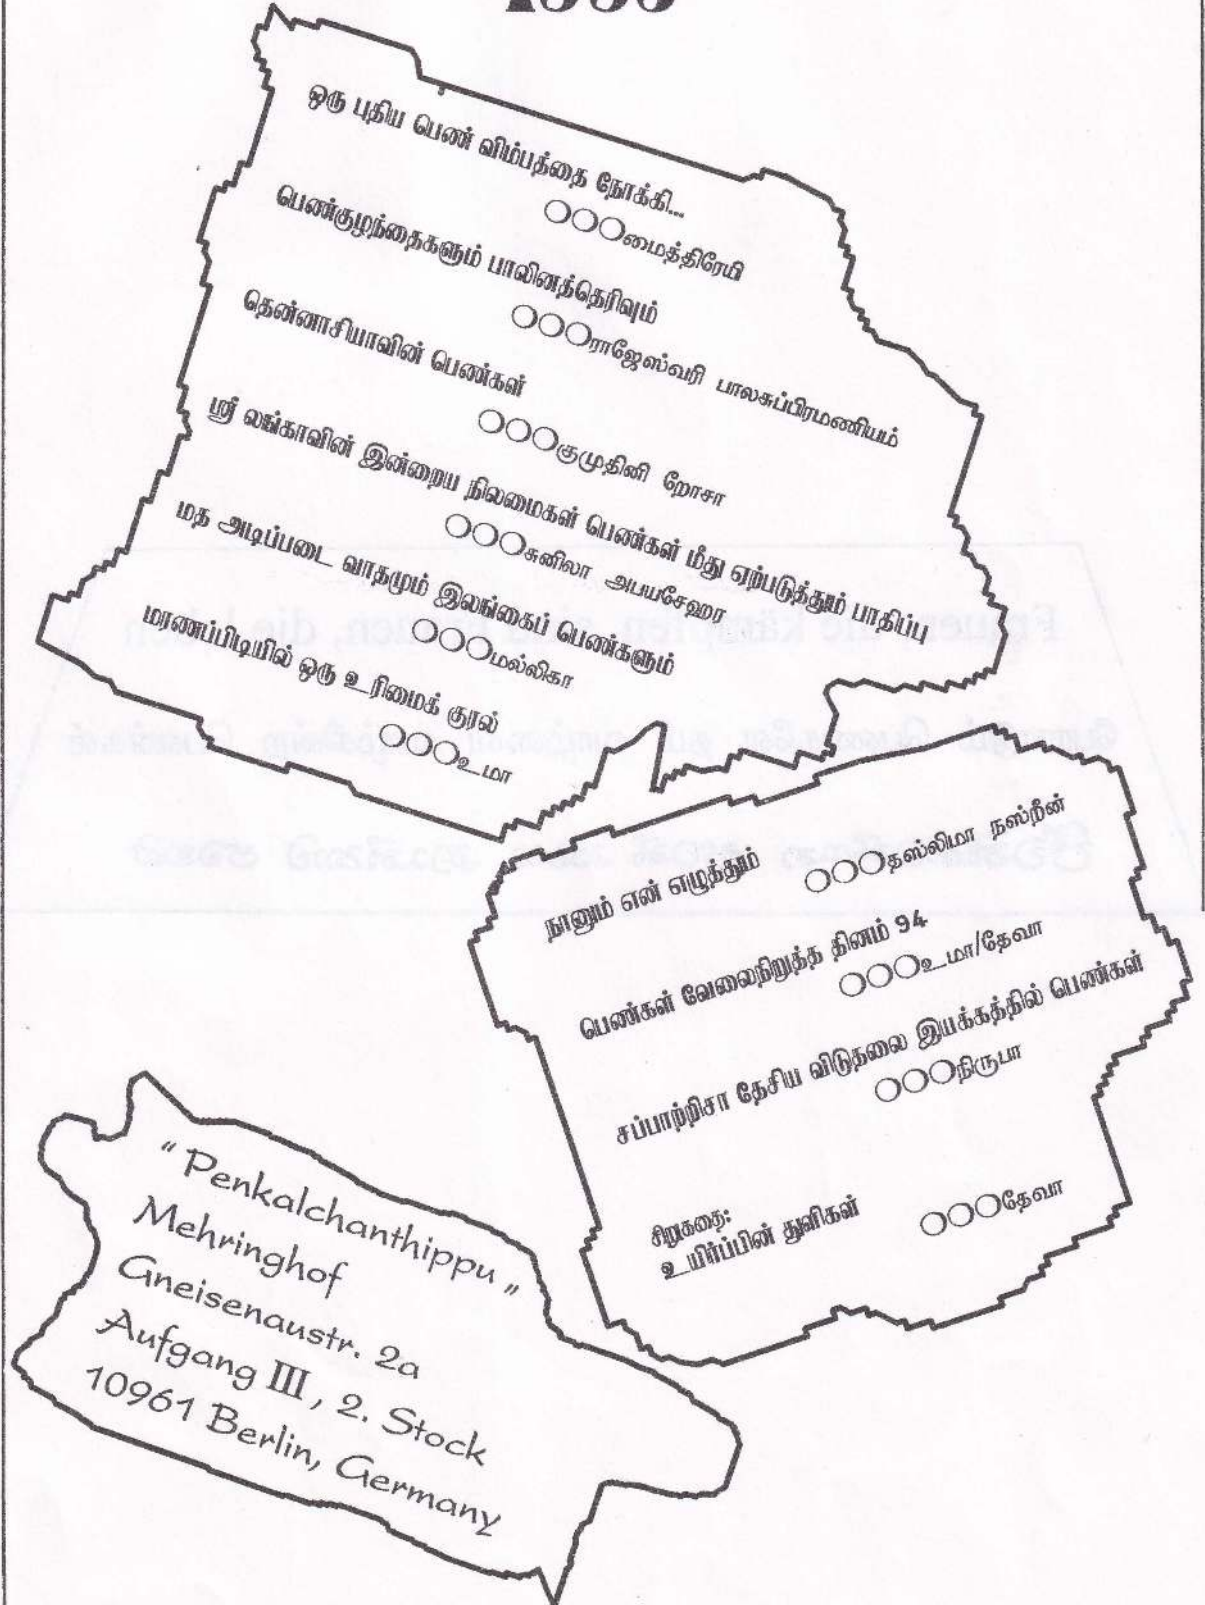 ஒரு புதிய பெண் விம்பத்தை நோக்கி...
○○○மைத்திரேயி
பெண்குழந்தைகளும் பாலினத்தெரிவும்
○○○ராஜேஸ்வரி பாலசுப்பிரமணியம்
தென்னாசியாவின் பெண்கள்
○○○குமுதினி றோசா
ஸ்ரீ லங்காவின் இன்றைய நிலமைகள் பெண்கள் மீது ஏற்படுத்தும் பாதிப்பு
○○○சுனிலா அபயசேஹர
மத அடிப்படை வாதமும் இலங்கைப் பெண்களும்
○○○மல்லிகா
மரணப்பிடியில் ஒரு உரிமைக் குரல்
○○○உமா
நானும் என் எழுத்தும் ○○○தஸ்லிமா நஸ்றீன்
பெண்கள் வேலைநிறுத்த தினம் 94
○○○உமா/தேவா
சப்பாற்றிசா தேசிய விடுதலை இயக்கத்தில் பெண்கள்
○○○நிருபா
சிறுகதை:
உயிர்ப்பின் துளிகள் ○○○தேவா
“ Penkalchanthippu „
Mehringhof
Gneisenaustr. 2a
Aufgang III, 2. Stock
10961 Berlin, Germany